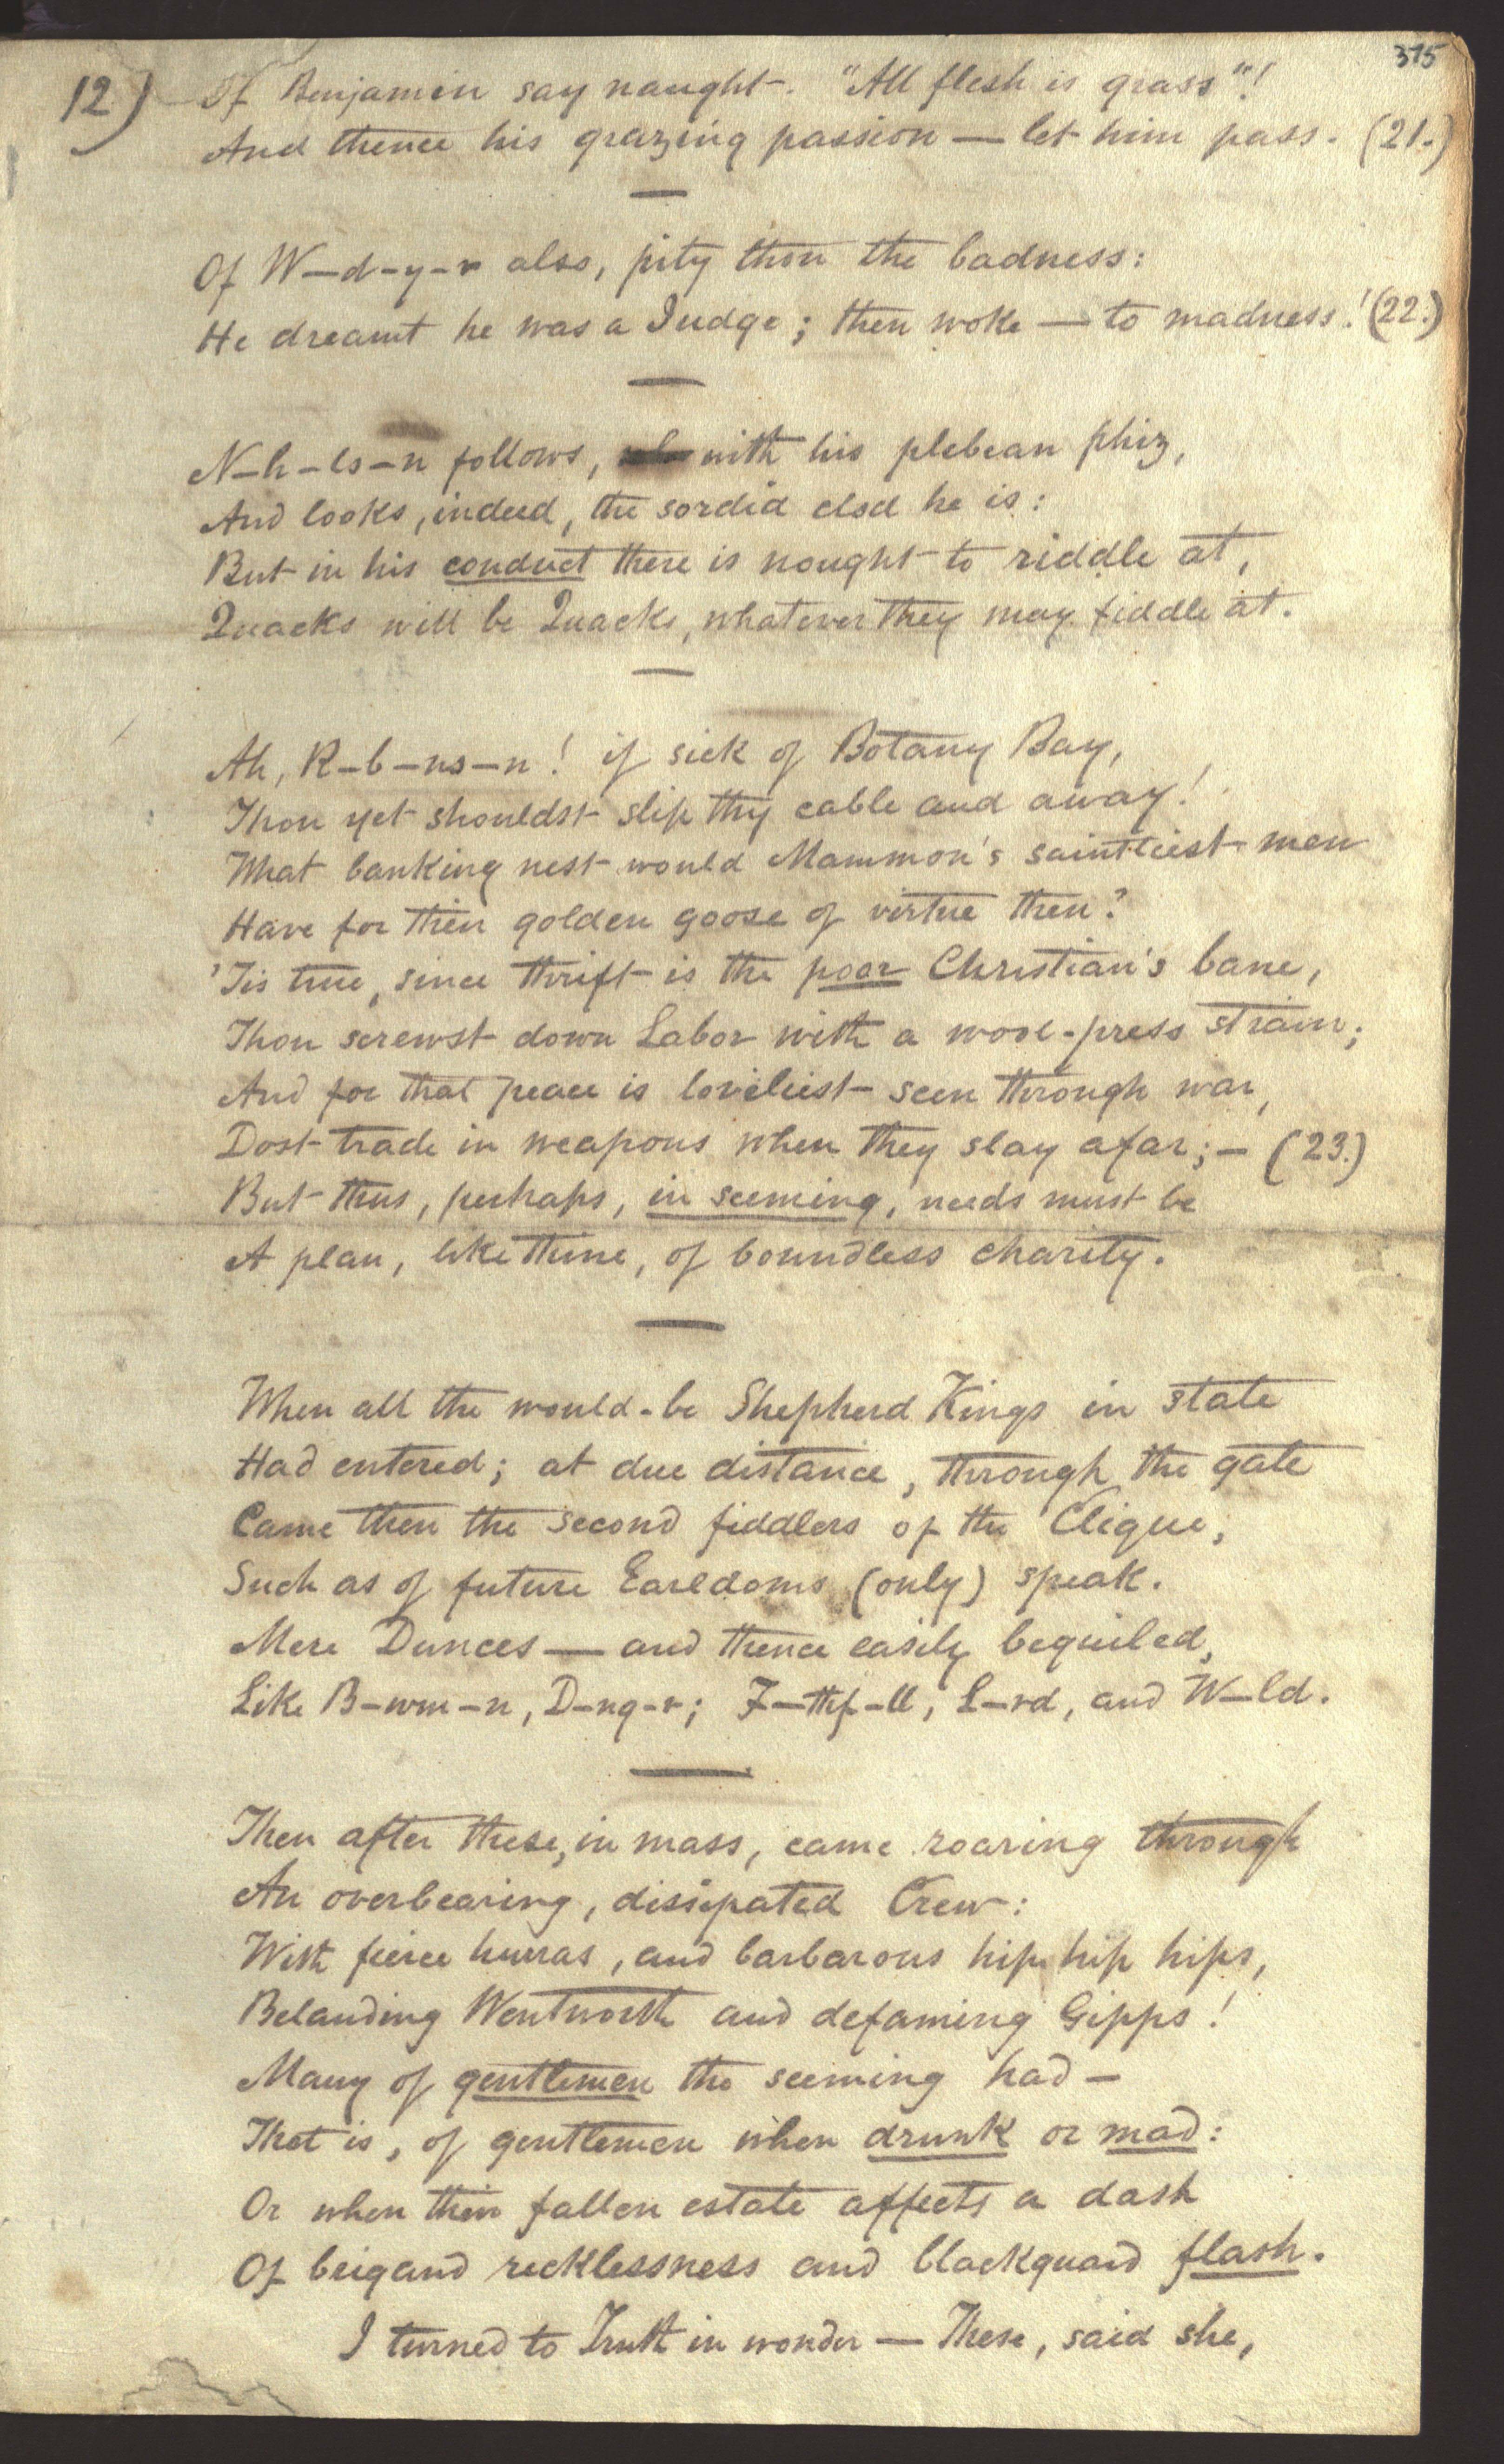 375
12) Of Benjamin say naught. "All flesh is grass"!
And thence his grazing passion — let him pass. (21.)
Of W—d-y-r also, pity thou the badness:
He dreamt he was a Judge; then woke — to madness! (22.)
N-h-ls-n follows, with his plebean phiz,
And looks, indeed, the sordid clod he is:
But in his conduct there is nought to riddle at,
Quacks will be Quacks, whatever they may fiddle at.
Ah, R-b-ns-n! if sick of Botany Bay,
Thou yet shouldst slip thy cable and away!
What banking nest would Mammon's saintliest men
Have for their golden goose of virtue then?
'Tis true, since thrift is the poor Christian's bane,
Thou screwst down Labor with a wool-press strain;
And for that peace is loveliest seen through war,
Dost trade in weapons when they slay afar; — (23.)
But thus, perhaps, in seeming, needs must be
A plan, like thine, of boundless charity.
When all the would-be Shepherd Kings in state
Had entered; at due distance, through the gate
Came then the second fiddlers of the Clique,
Such as of future Earldoms (only) speak.
Mere Dunces — and thence easily beguiled,
Like B-wm-n, D-ng-r; F—thf-ll, L-rd, and W-ld.
Then after these, in mass, came roaring through
An overbearing, dissipated Crew:
With fierce hurras, and barbarous hip hip hips,
Belauding Wentworth and defaming Gipps!
Many of gentlemen the seeming had —
That is, of gentlemen when drunk or mad:
Or when their fallen estate affects a dash
Of brigand recklessness and blackguard flash.
I turned to Truth in wonder — These, said she,